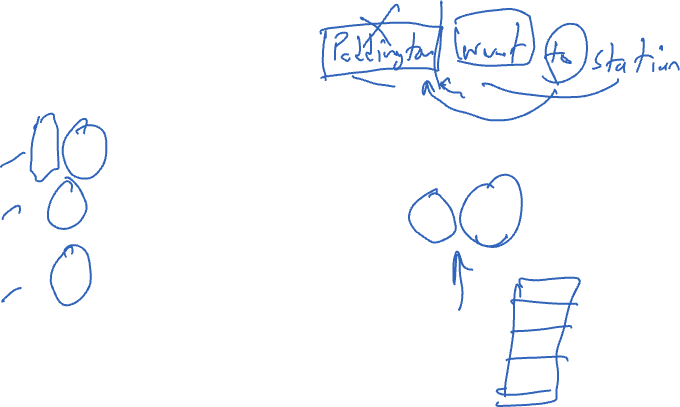 Paddington went to station